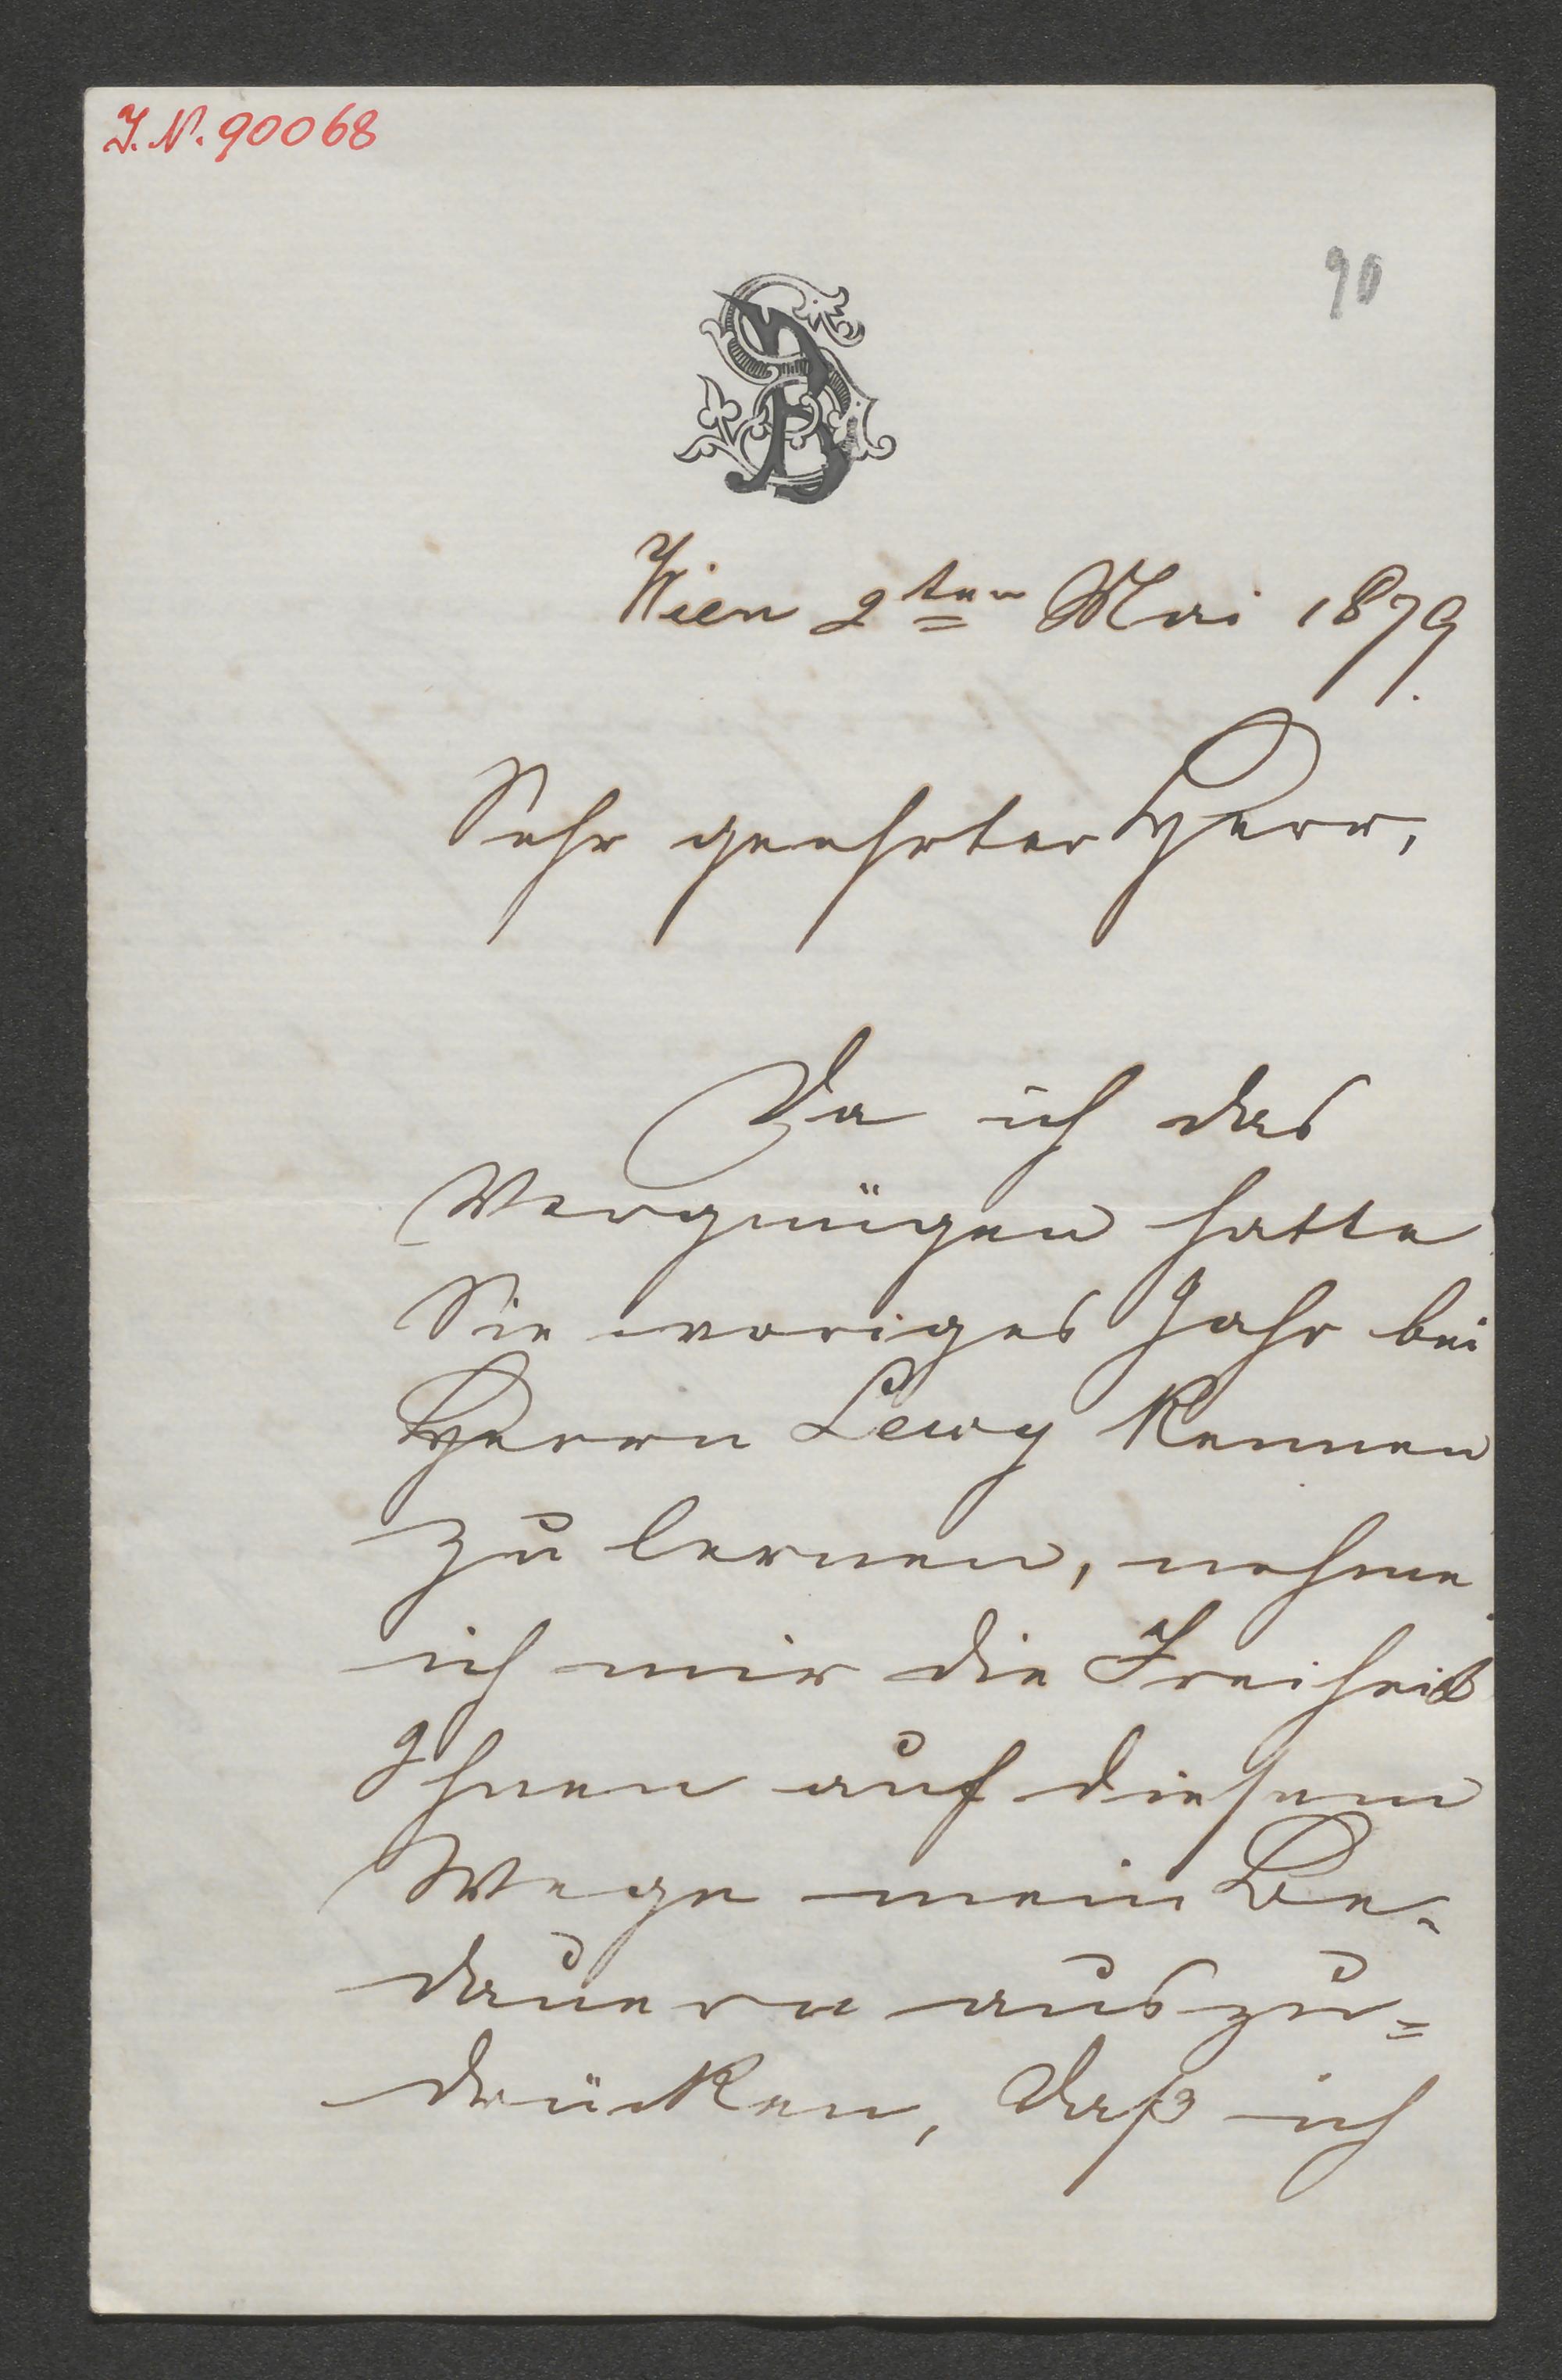 I. N. 90068
90
SB
Wien 2ten Mai 1879.
Sehr geehrter Herr,
Da ich das
Vergnügen hatte
Sie voriges Jahr bei
Herrn Lewy kennen
zu lernen, nehme
ich mir die Freiheit
Ihnen auf diesem
Wege mein Be-
dauern auszu=
drücken, daß ich